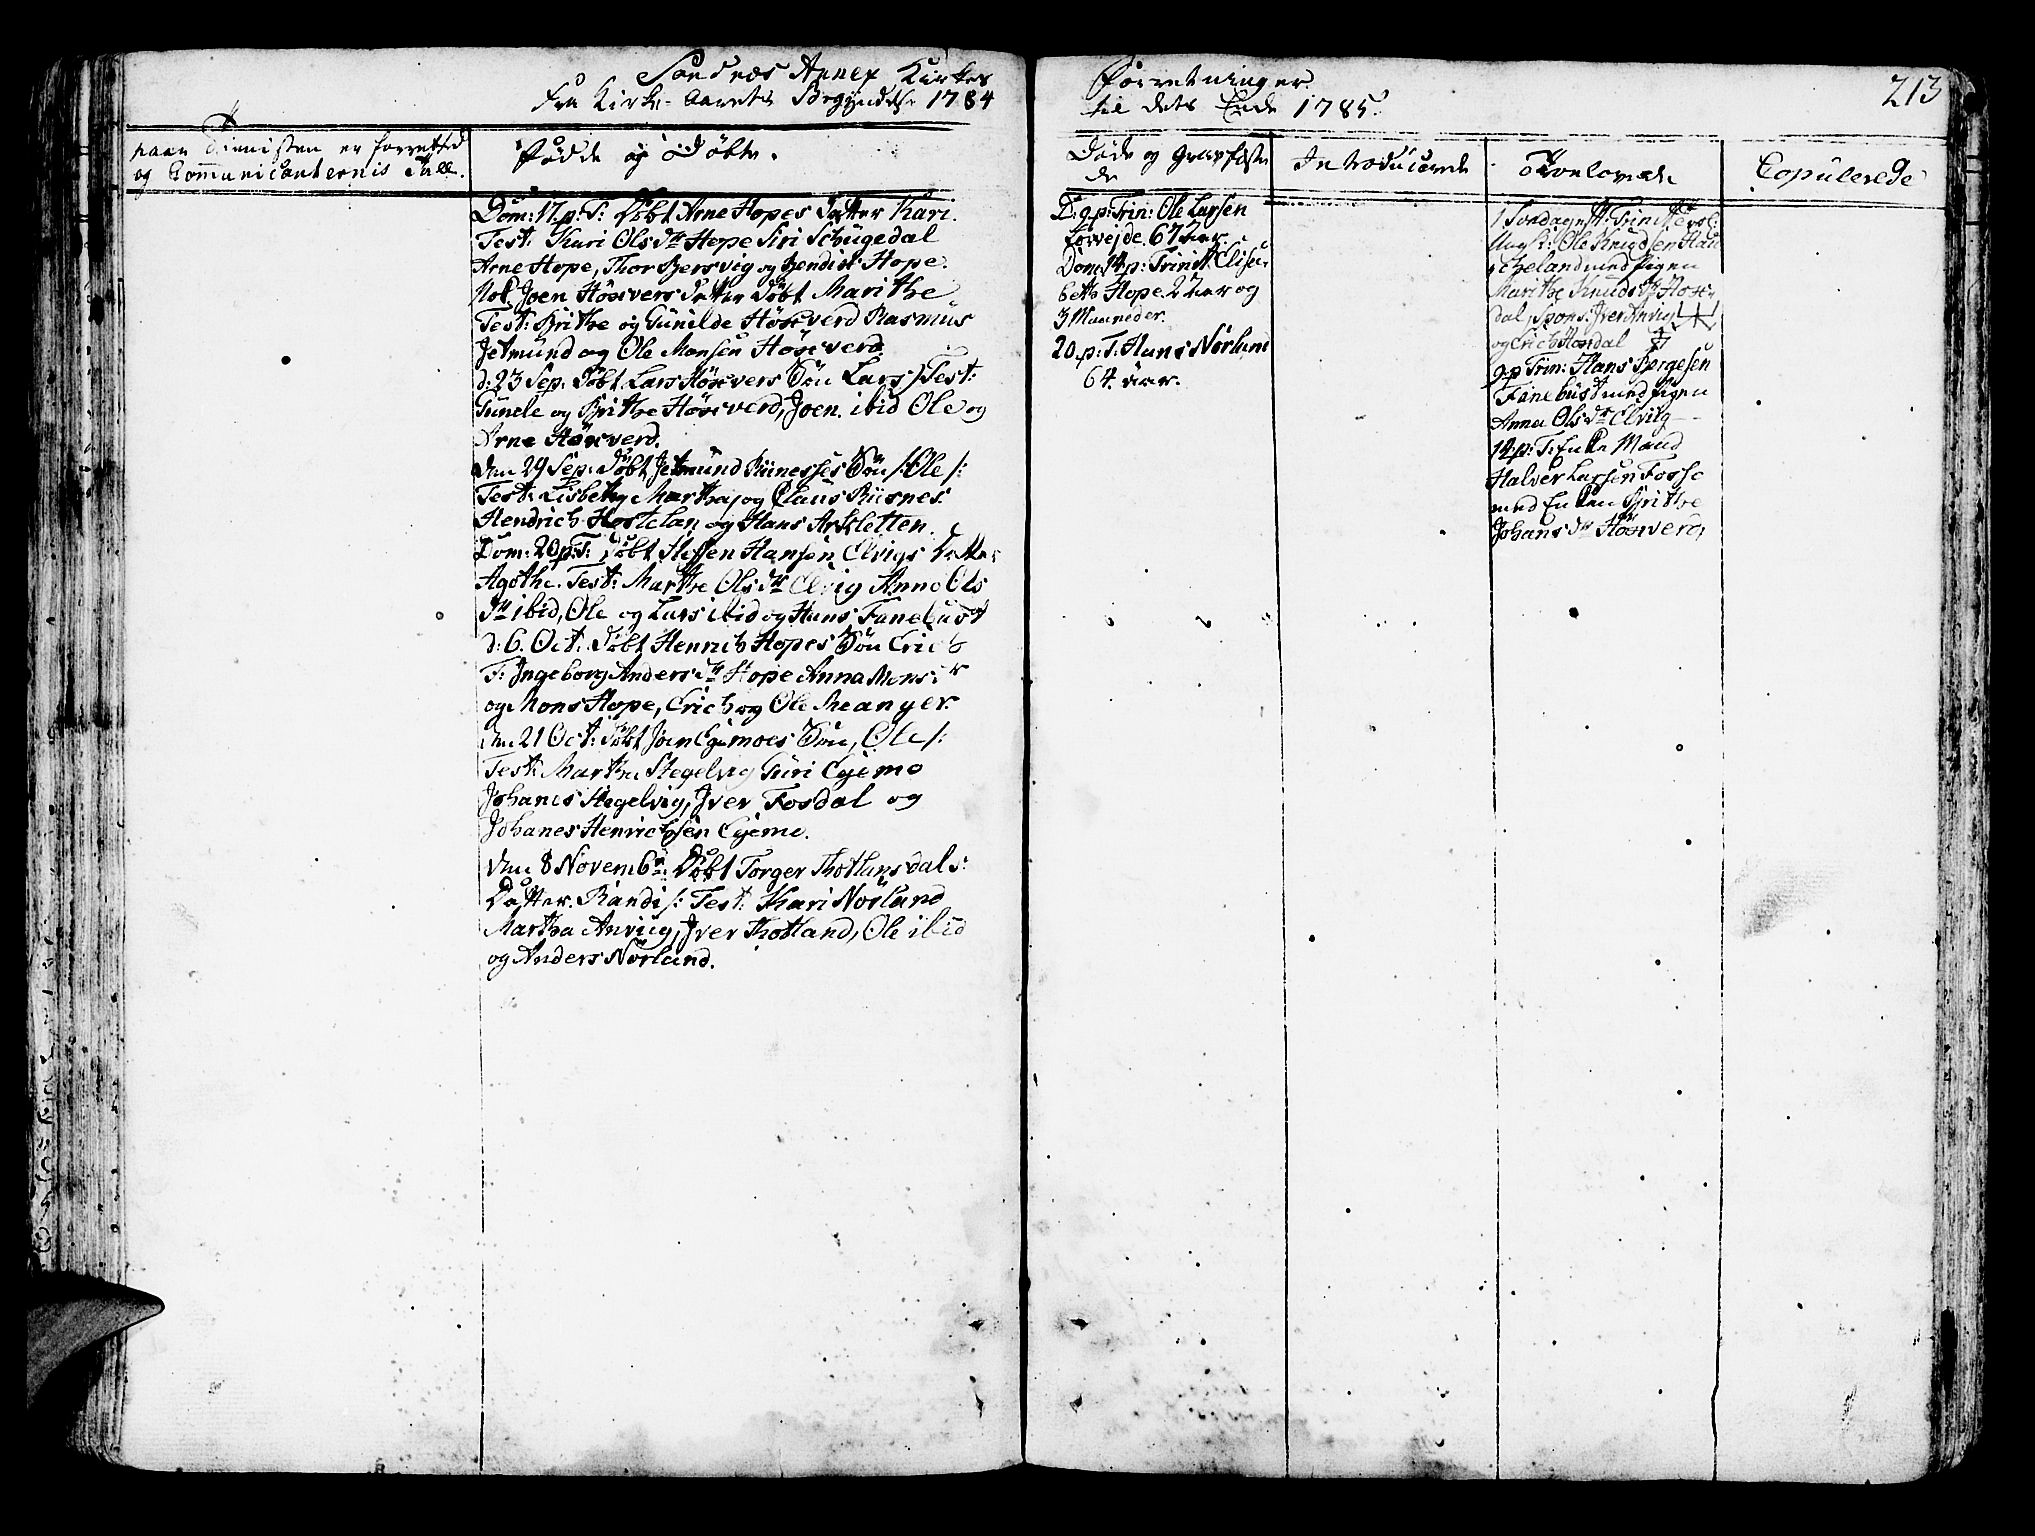 Sandnes Annex Kirkes
Fra Kirke-Aarets Begyndelse 1784
Forretninger
til dets Ende 1785.
213
naar Tienisten er forretted
og Communicanternis Tall.
Fødde og Døbte.
Døde og Gravfæste
de
Introducerede
Trolovede
Copulerede
Dom: 17. p: T: Døbt Arne Hopes Datter Kari.
Test: Kari Ols dr Hope Siri
Arne Hope, Thor Bersvig og Bendix Hope.
Joen Hösevers Datter Døbt Marithe
Test: Brithe og Gunilde Höseverd Rasmus
Jetmund og Ole Monsen Höseverd.
d: 23 Sep. Døbt Lars Hösevers Søn Lars) Test:
Gunele og Brithe Höseverd, Joen ibid Ole og
Arne Höseverd.
den 29 Sep: Døbt Jetmund Riisnesses Søn /:Ole/:
Test: Lisbeth, Martha, og Claus Riisnes
Hendrich Hostelan og Hans Arsletten.
Dom: 20 p: T: Døbt Steffen Hansen Elvigs Datter
Agothe. Test: Marthe Ols dr Elvig Anne Ols
dr ibid, Ole og Lars ibid og Hans Fanebust
d: 6. Oct: Døbt Henrich Hopes Søn Erich
T: Ingeborg Anders dr Hope Anna Mons dr
og Mons Hope, Erich og Ole Meanger.
den 21 Oct: Døbt Joen Ejemoes Søn, Ole/:
Test: Martha Stegelvig Guri Ejeme
Johanes Stegelvig, Jver Fosdal og
Johanes Henrichsen Ejeme.
den 8 Novembr: Døbt Torger Thotlansdals:
Datter. Randi/: Test: Kari Nörland
Martha Anviig, Jver Thotland, Ole ibid
og Anders Nörland.
D: 9. p: Trin: Ole Larsen
67 Aar.
Dom: 14. p: Trinit. Elisa-
beth Hope. 2 Aar og
3 Maaneder.
20. p: T: Hans Nörland
64. Aar.
1 Sondag ntr: Trinit
Ungk: Ole Knudsen Hau
cheland med Pigen
Marithe Knuds dr Hose-
dal, Spons: Jver Anvig
og Erich Hosdal
9. p Trin: Hans Børgesen
Fanebust med Pigen
Anna Ols dr Elvilg
14. p: T: Enke Mand
Halver Larsen Fosse
med Enken Brithe
Johans dr Höseverd,